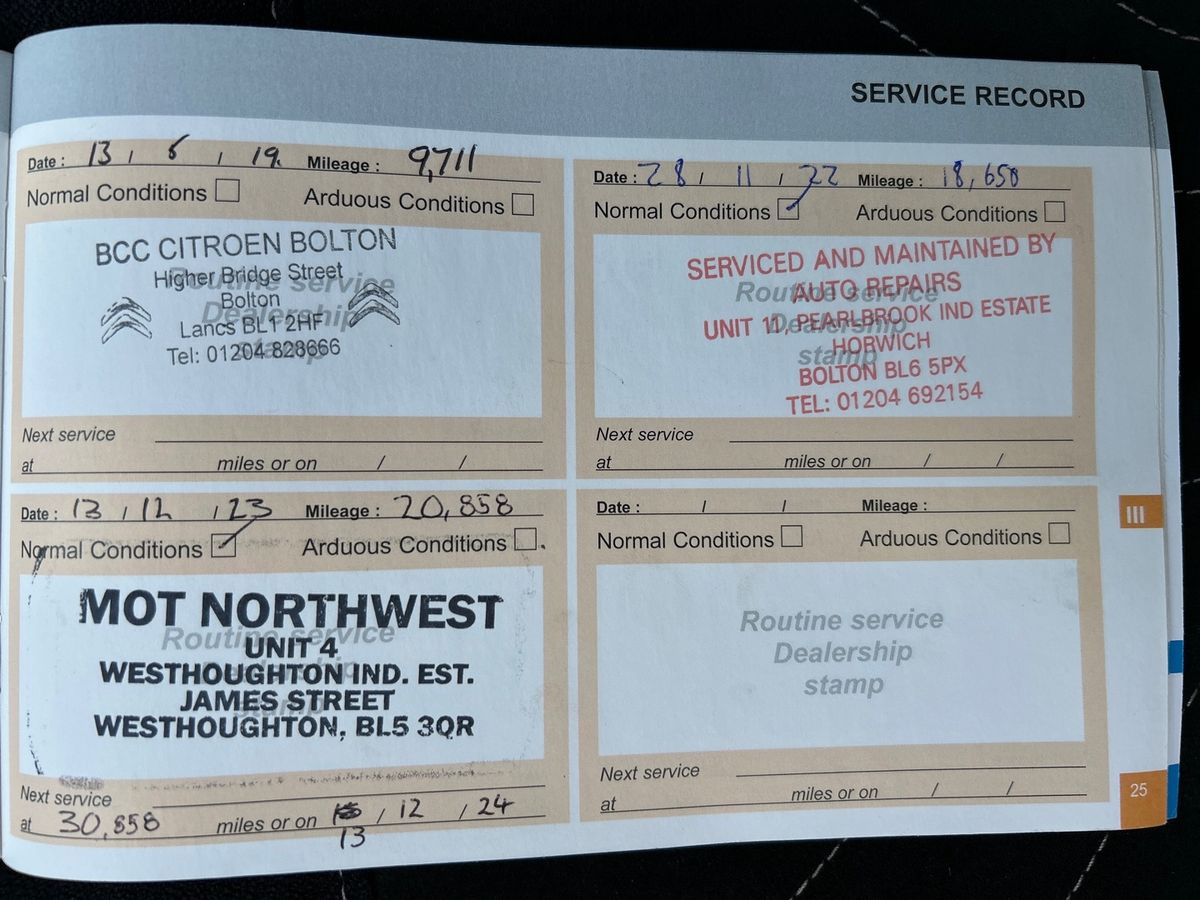 SERVICE RECORD
Date : 13 / 6 / 19. Mileage : 9,711
Normal Conditions Arduous Conditions
BCC CITROEN BOLTON
Higher Bridge Street
Bolton
Lancs BL1 2HF
Tel: 01204 828666
Routine service
Dealership
stamp
Next service
at miles or on / /
Date : 28 / 11 / 22 Mileage : 18,650
Normal Conditions Arduous Conditions
SERVICED AND MAINTAINED BY
AUTO REPAIRS
UNIT 11, PEARLBROOK IND ESTATE
HORWICH
BOLTON BL6 5PX
TEL: 01204 692154
Routine service
Dealership
stamp
Next service
at miles or on / /
Date : 13 / 12 / 23 Mileage : 20,858
Normal Conditions Arduous Conditions
MOT NORTHWEST
UNIT 4
WESTHOUGHTON IND. EST.
JAMES STREET
WESTHOUGHTON, BL5 3QR
Routine service
Dealership
stamp
Next service
at 30,858 miles or on / 12 / 24
13
Date : / / Mileage :
Normal Conditions Arduous Conditions
Routine service
Dealership
stamp
Next service
at miles or on / /
III
25